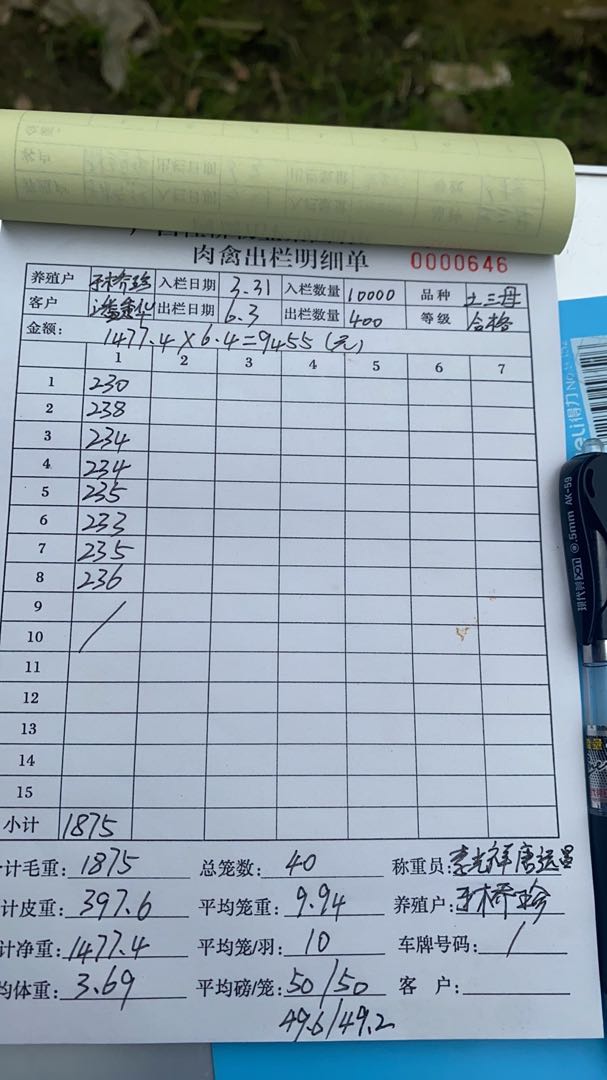 肉禽出栏明细单 0000646
养殖户 入栏日期 3.31 入栏数量 10000 品种 土三母
客户 出栏日期 6.3 出栏数量 400 等级 合格
金额: 1477.4×6.4=9455(元)
1 2 3 4 5 6 7
1 230
2 238
3 234
4 234
5 235
6 233
7 235
8 236
9
10
11
12
13
14
15
小计 1875
计毛重: 1875 总笼数: 40 称重员:
计皮重: 397.6 平均笼重: 9.94 养殖户:
计净重: 1477.4 平均笼/羽: 10 车牌号码: /
均体重: 3.69 平均磅/笼: 50/50 客户:
49.6/49.2
deli得力
0.5mm AK-59